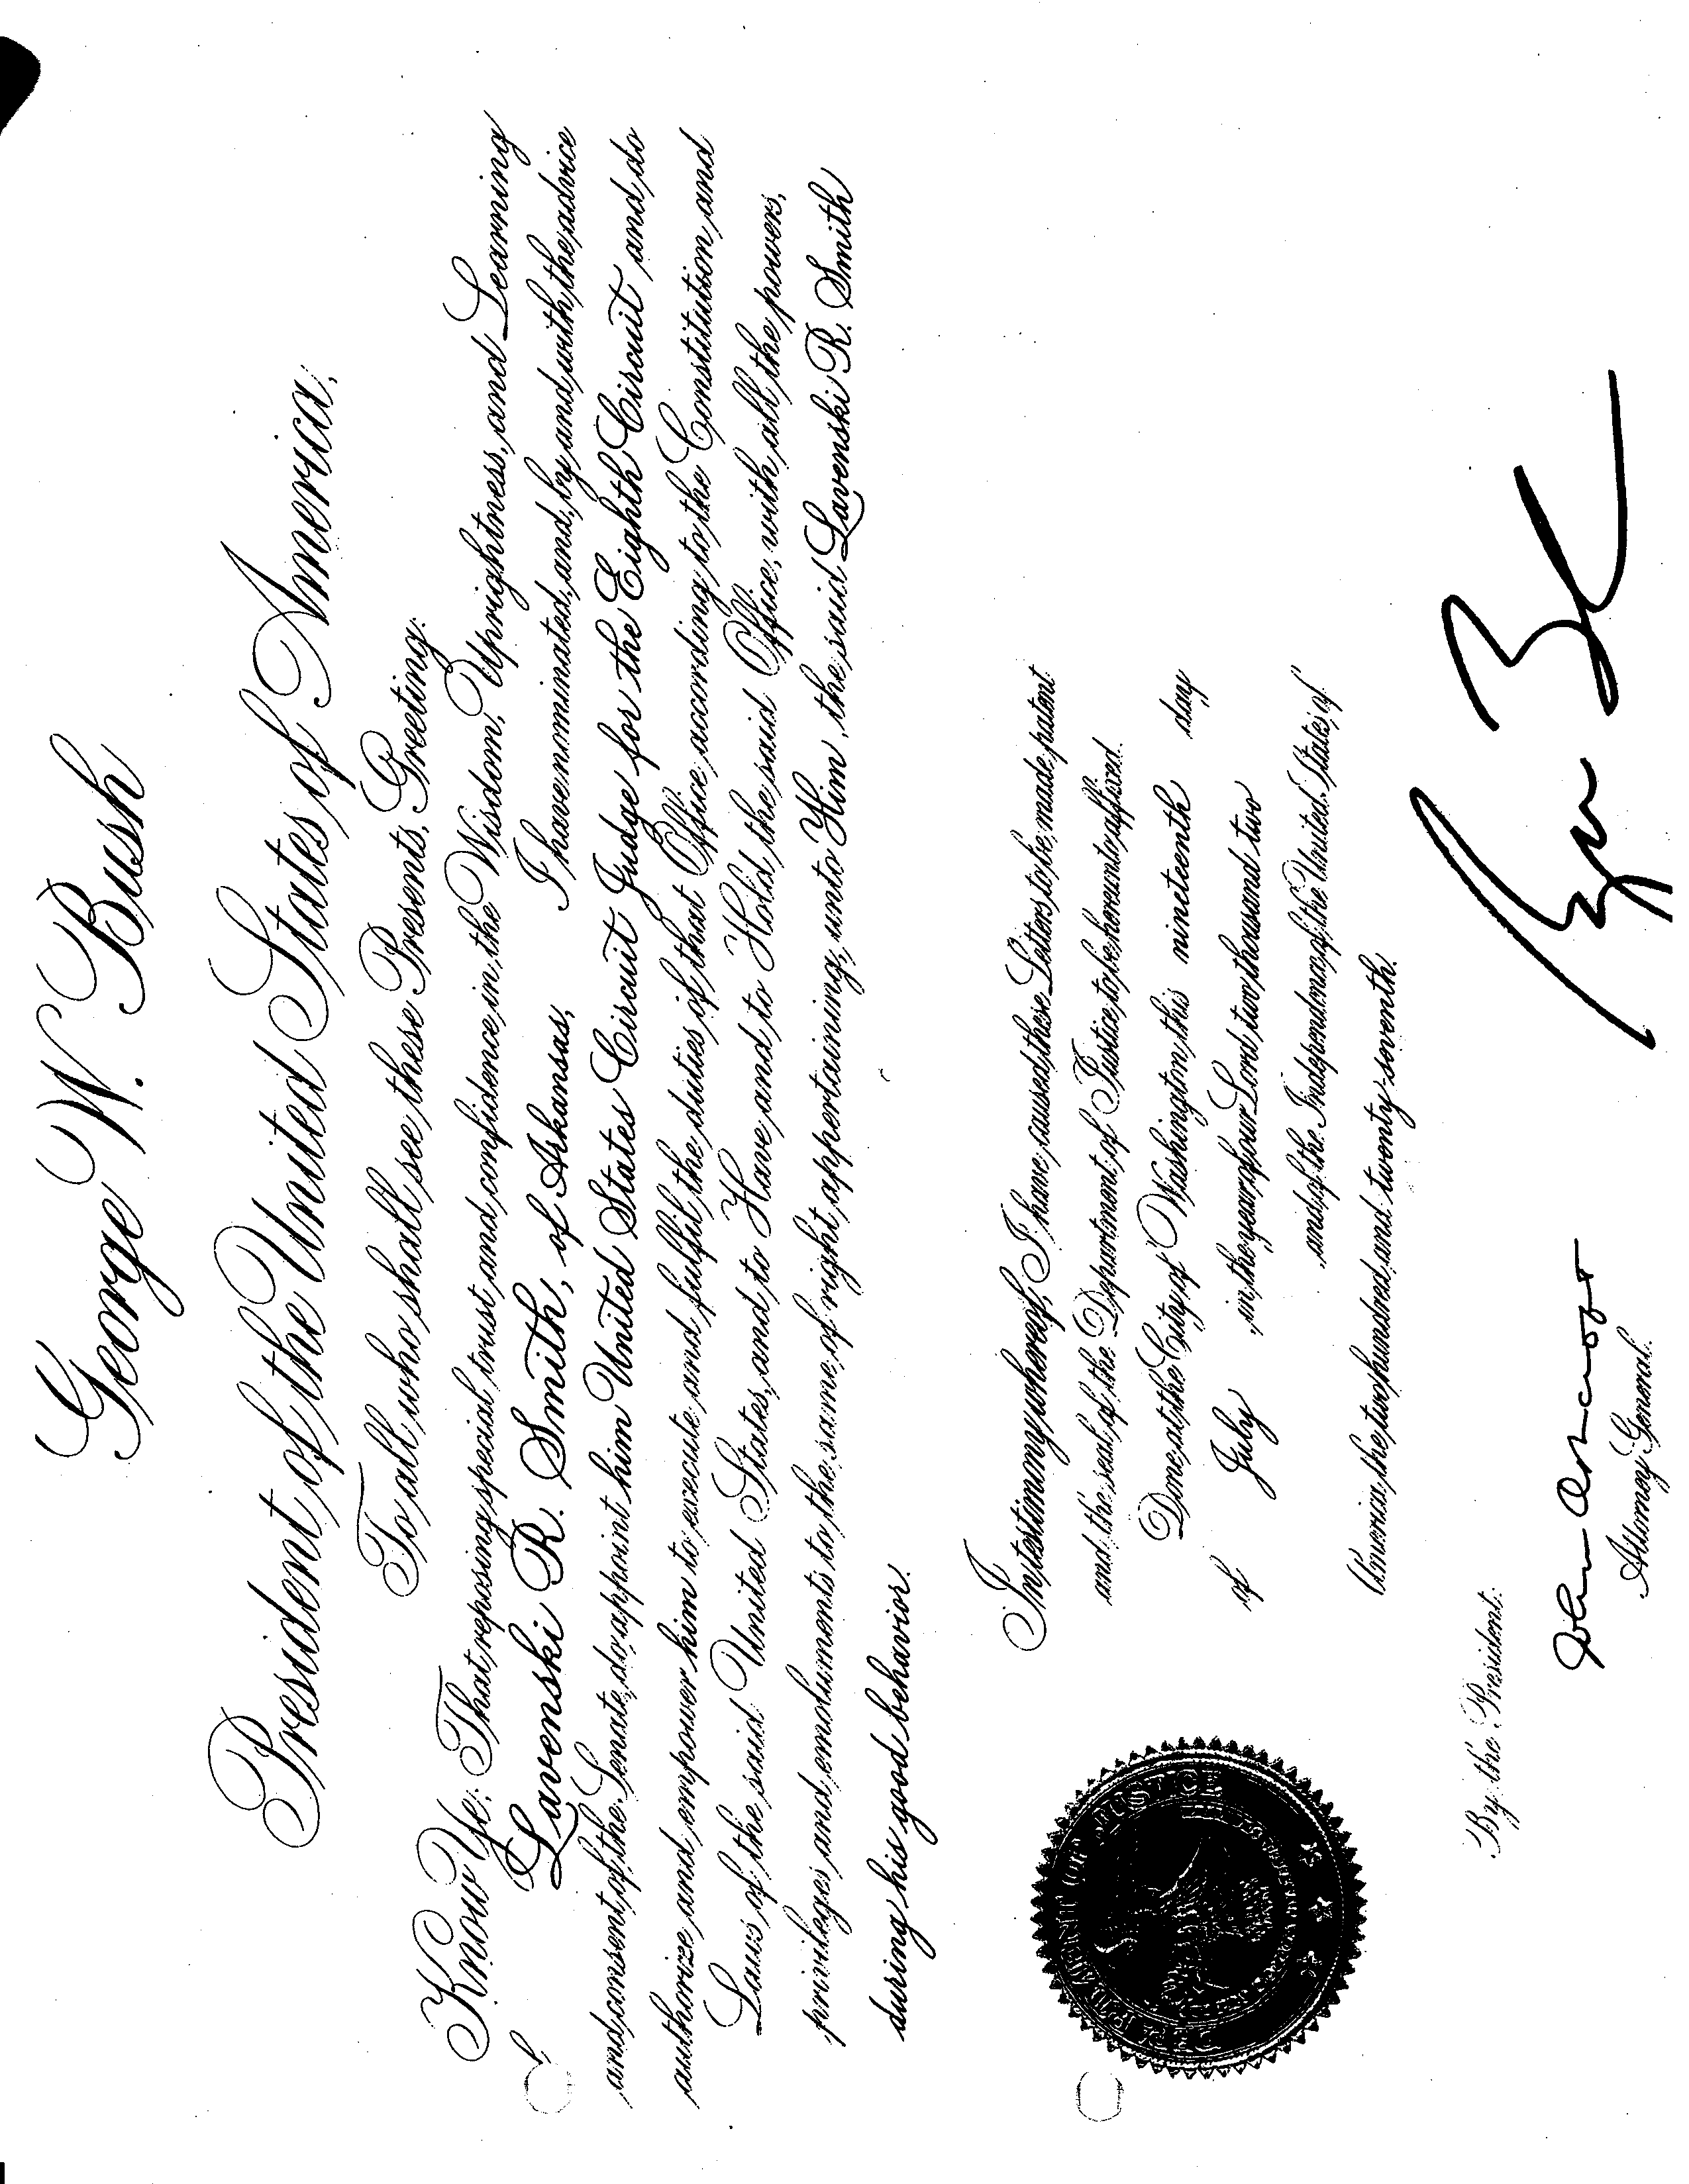 George W. Bush
President of the United States of America,
To all who shall see these Presents, Greeting:
Know Ye: That reposing special trust and confidence in the Wisdom, Uprightness, and Learning
of Lavenski R. Smith, of Arkansas, I have nominated, and, by and with the advice
and consent of the Senate, do appoint him United States Circuit Judge for the Eighth Circuit and do
authorize and empower him to execute and fulfil the duties of that Office according to the Constitution and
Laws of the said United States, and to Have and to Hold the said Office, with all the powers,
privileges and emoluments to the same of right appertaining, unto Him, the said Lavenski R. Smith
during his good behavior.
In testimony whereof, I have caused these Letters to be made patent
and the seal of the Department of Justice to be hereunto affixed.
Done at the City of Washington, this nineteenth day
of July in the year of our Lord two thousand two
and of the Independence of the United States of
America the two hundred and twenty-seventh.
By the President:
John Ashcroft
Attorney General.
DEPARTMENT OF JUSTICE